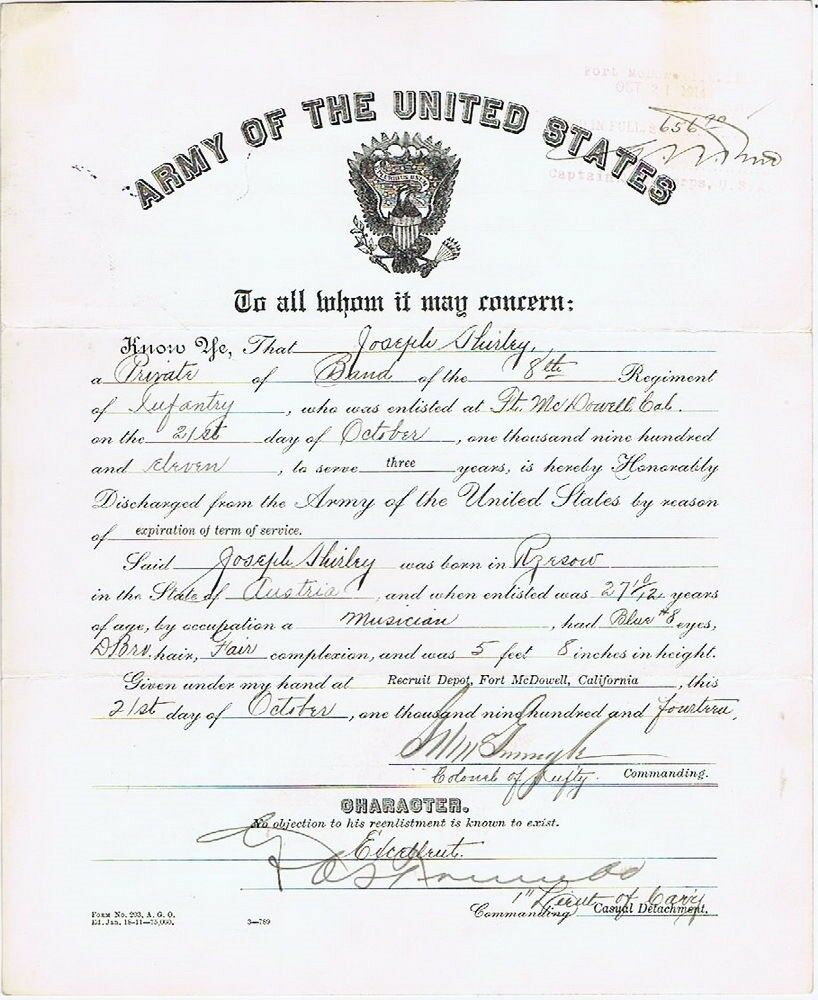 Fort McDowell
OCT 21 1914
IN FULL, $
656 70
Captain Corps, U.S.A.
ARMY OF THE UNITED STATES
To all whom it may concern:
Know Ye, That Joseph Shirley,
a Private of Band of the 8th Regiment
of Infantry, who was enlisted at Ft. McDowell, Cal.
on the 21st day of October, one thousand nine hundred
and eleven, to serve three years, is hereby Honorably
Discharged from the Army of the United States by reason
of expiration of term of service.
Said Joseph Shirley was born in Rzesow
in the State of Austria, and when enlisted was 27 10/12 years
of age, by occupation a Musician, had Blue #8 eyes,
D Bro. hair, Fair complexion, and was 5 feet 8 inches in height.
Given under my hand at Recruit Depot, Fort McDowell, California, this
21st day of October, one thousand nine hundred and fourteen.
Colonel of Infty. Commanding.
CHARACTER.
No objection to his reenlistment is known to exist.
Excellent.
1" Lieut. of Cav'y
Commanding Casual Detachment.
FORM No. 293, A. G. O.
Ed. Jan. 18-11—75,000.
3—789